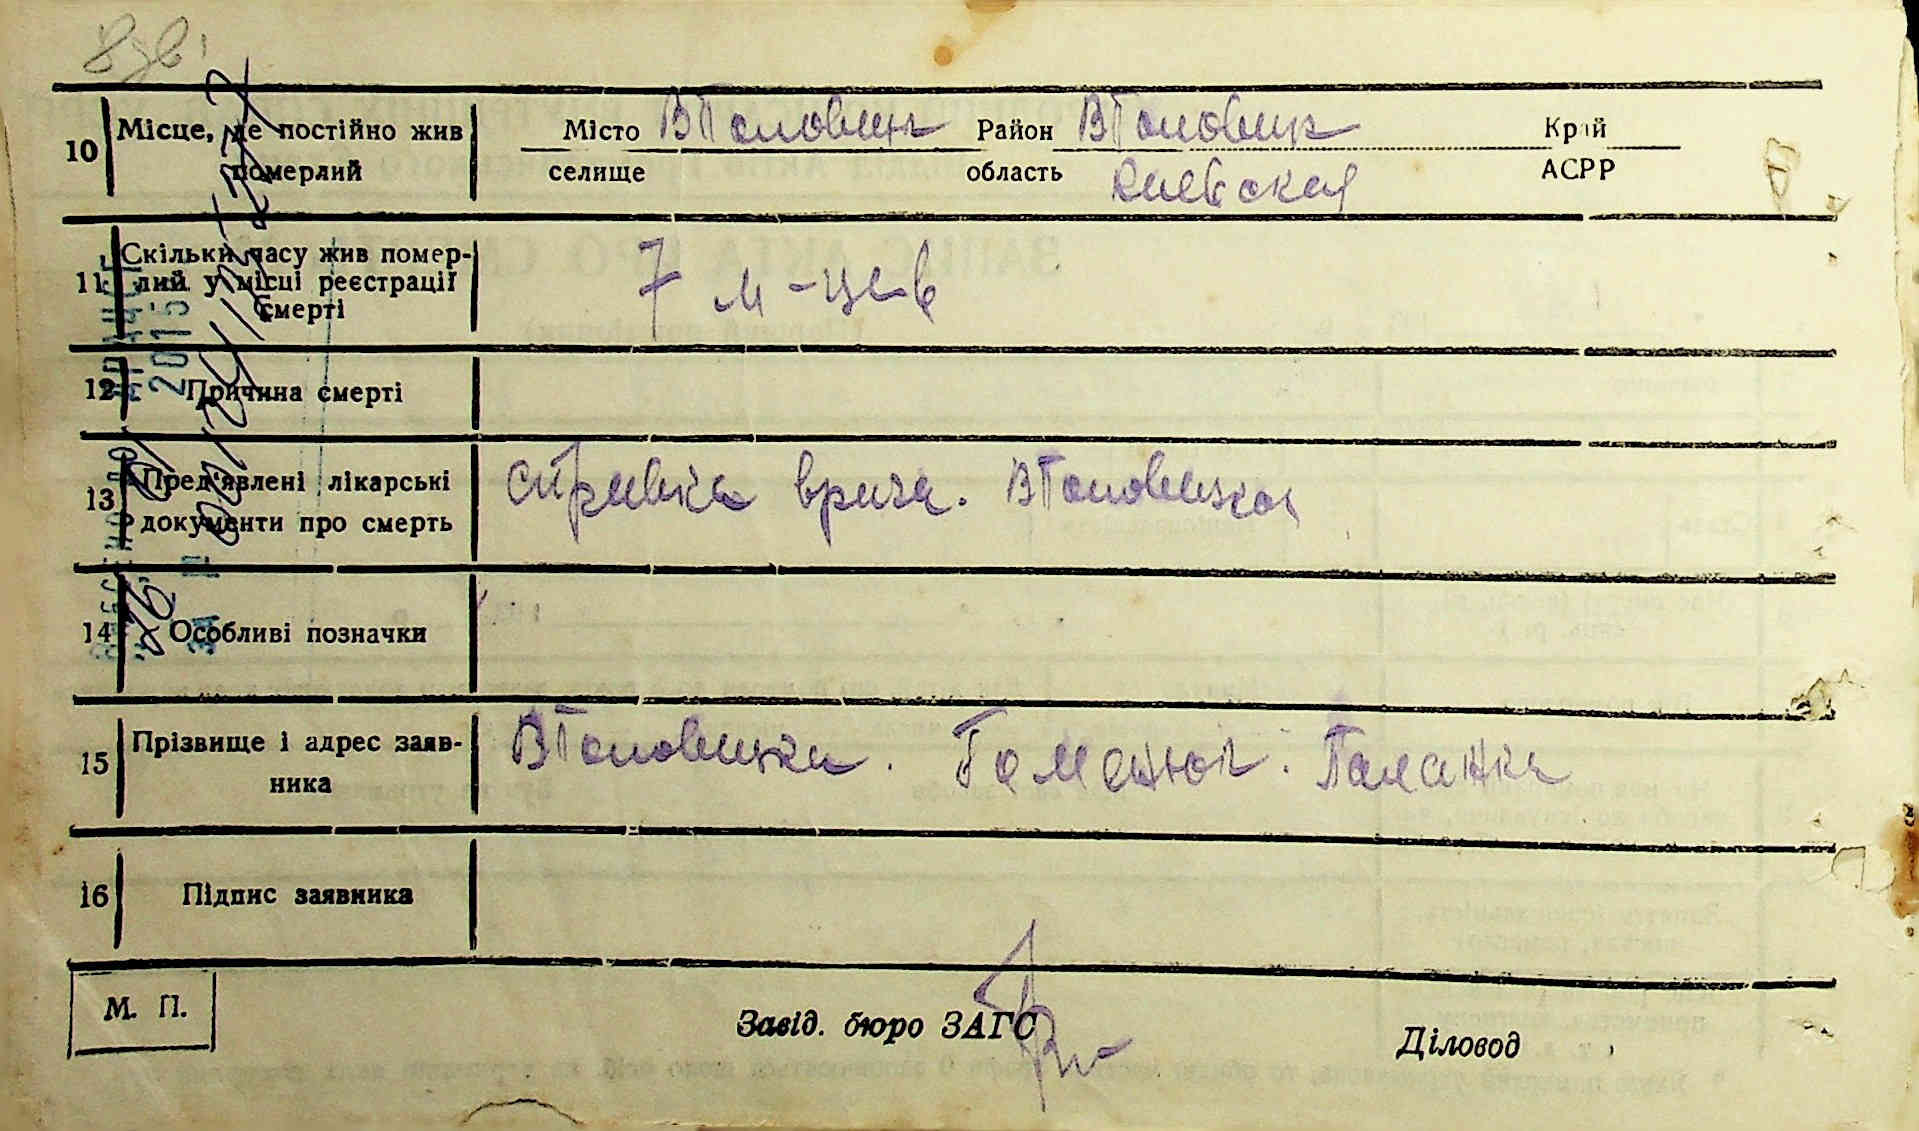 10 Місце, де постійно жив Місто ВПоловецк Район ВПоловецк Край
померлий селище область Киевская АСРР
11 Скільки часу жив помер-
лий у місці реєстрації 7 м-цев
смерті
12 Причина смерті
13 Пред'явлені лікарські справка врача. ВПоловецкая
документи про смерть
14 Особливі позначки
15 Прізвище і адрес заяв- ВПоловецкая. Гаманюк. Паланка
ника
16 Підпис заявника
М. П.
Завід. бюро ЗАГС
Діловод
2015